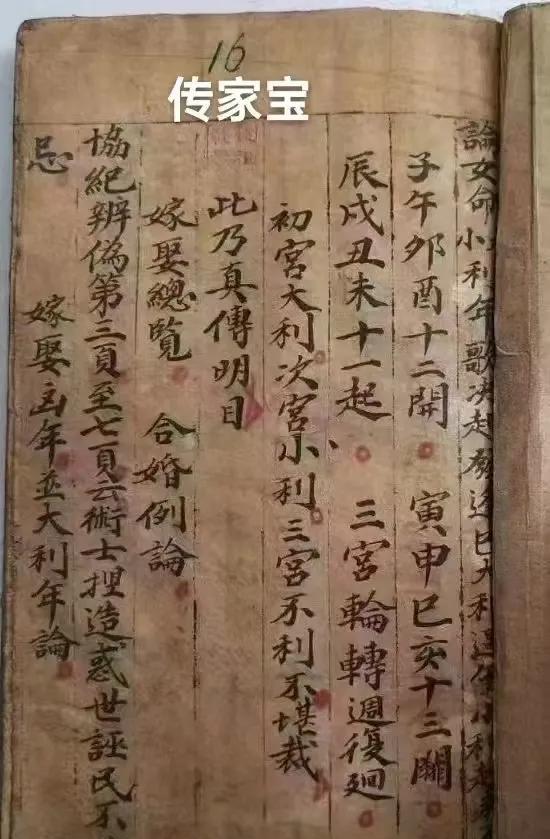 16
传家宝
論女命小利年歌决起
子午卯酉十二開 寅申巳亥十三關
辰戌丑未十一起 三宮輪轉週復廻
初宮大利次宮小利 三宮不利不堪裁
此乃真傳明目
嫁娶總覽 合婚例論
協紀辨偽第三頁至七頁云術士捏造惑世誣民不
忌 嫁娶凶年並大利年論